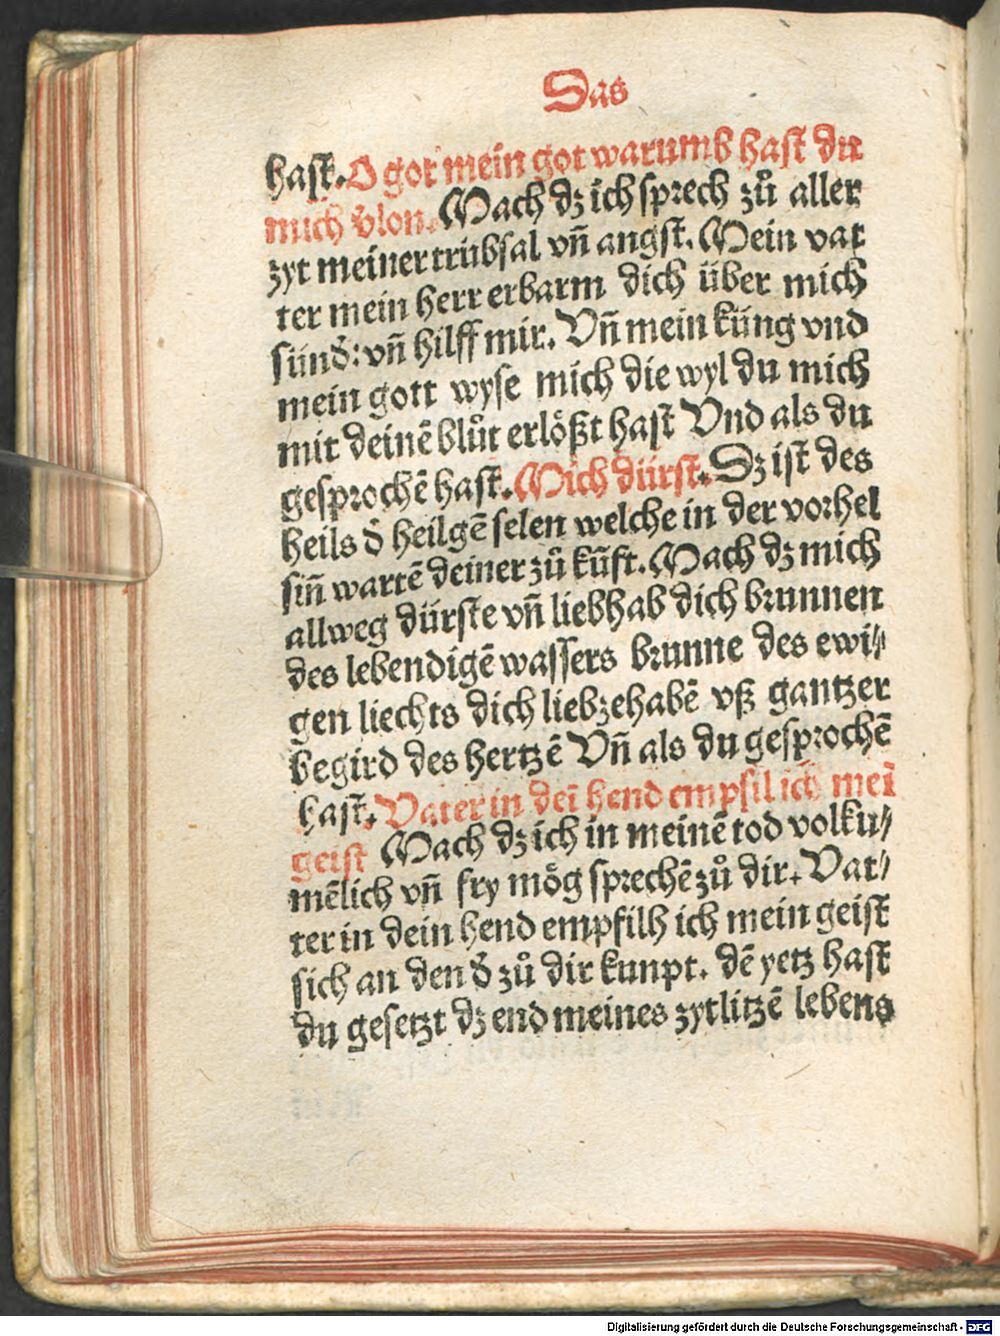 Das
hast. O got mein got warumb hast du
mich v̄lon. Mach dz ich sprech zů aller
zyt meiner trübsal vn̄ angst. Mein vat
ter mein herr erbarm dich über mich
sünd̄: vn̄ hilff mir. Vn̄ mein küng vnd
mein gott wyse mich die wyl du mich
mit deinē blůt erlößt hast Vnd als du
gesprochē hast. Mich dürst. Dz ist des
heils d̄ heilgē selen welche in der vorhel
sin̄ wartē deiner zů kūft. Mach dz mich
allweg dürste vn̄ liebhab dich brunnen
des lebendigē wassers brunne des ewi//
gen liechts dich liebzehabē vß gantzer
begird des hertzē Vn̄ als du gesprochē
hast. Vater in deī hend empfil ich meī
geist Mach dz ich in meinē tod volku//
mēlich vn̄ fry mög sprechē zů dir. Vat//
ter in dein hend empfilh ich mein geist
sich an den d̄ zů dir kunpt. dē yetz hast
du gesetzt dz end meines zytlitzē lebens
Digitalisierung gefördert durch die Deutsche Forschungsgemeinschaft - DFG